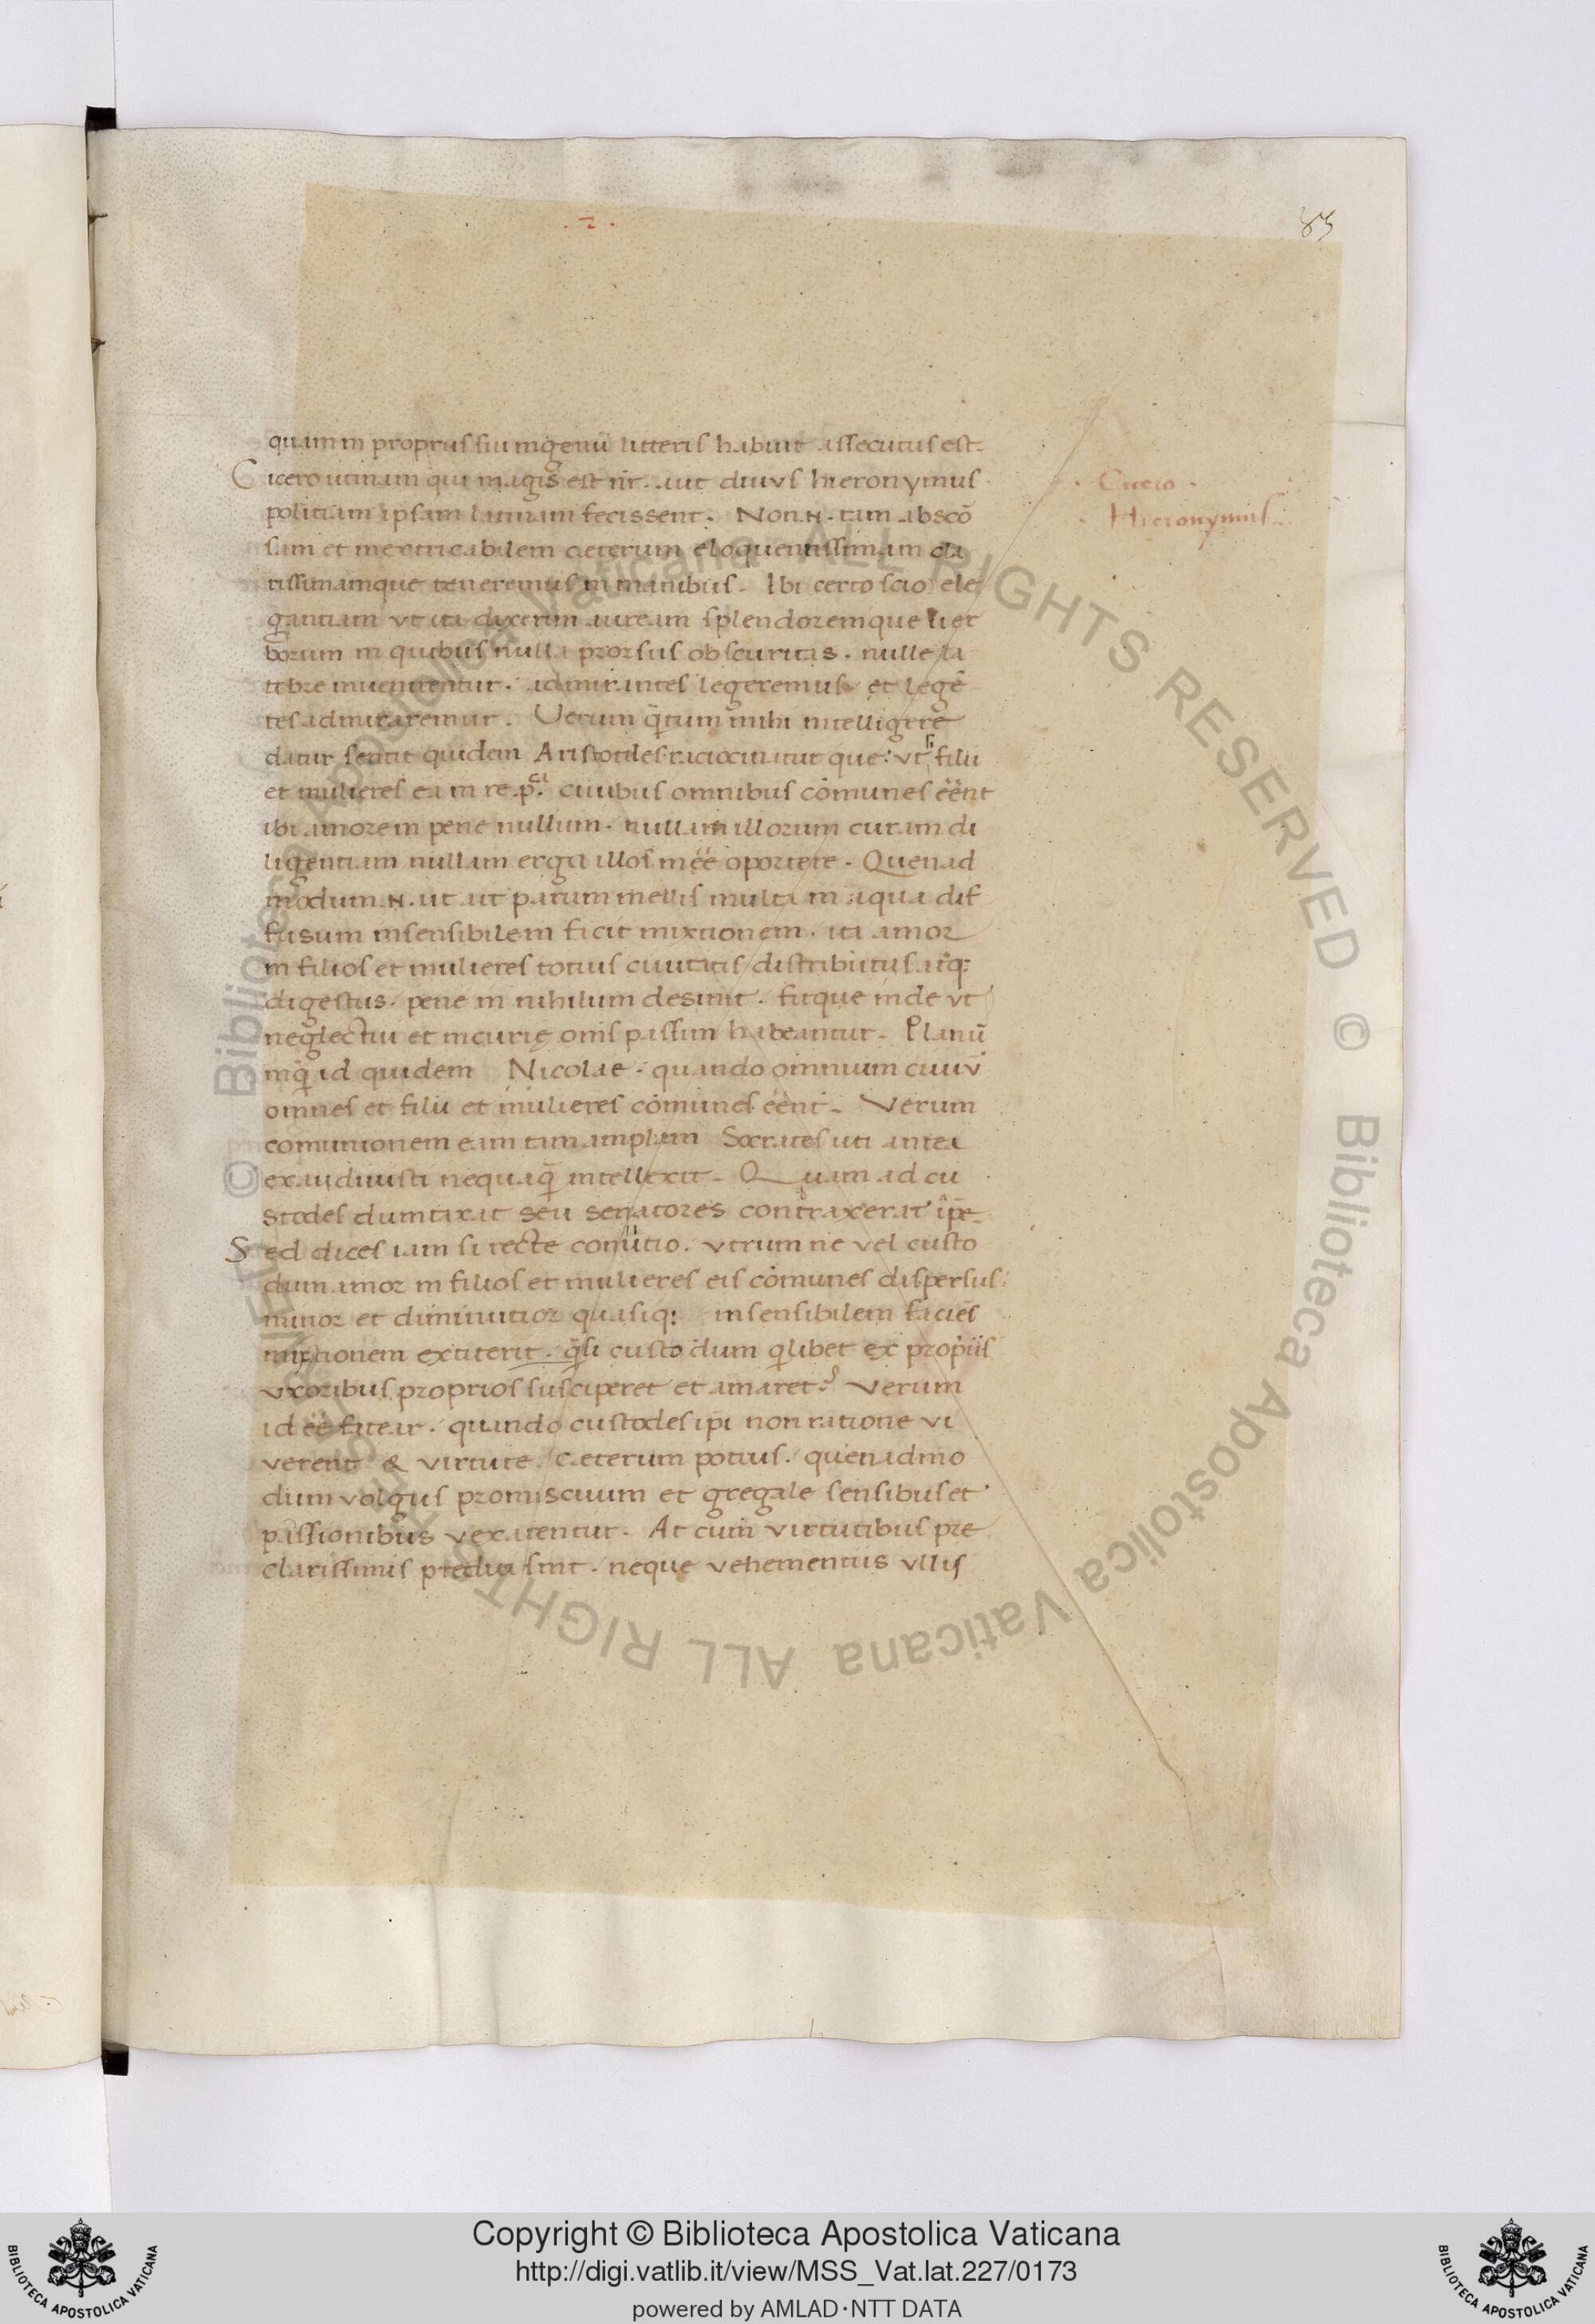 . 2 .
85
quam in propriis sui ingenii litteris habuit assecutus est.
Cicero utinam qui magis est nr̄. aut divus hieronymus
politiam ipsam latinam fecissent. Non .N. tam abscō
sam et inextricabilem ceterum eloquentissimam cla
rissimamque teneremus in manibus. Ibi certo scio ele
gantiam ut ita dixerim auream splendoremque ver
borum in quibus nulla prorsus obscuritas. nulle la
tebre invenirentur. admirantes legeremus et legē
tes admiraremur. Verum q̄tum mihi intelligere
datur sentit quidem Aristotiles raciocinatur que: ut si filii
et mulieres ea in re .p. ci civibus omnibus cōmunes eēnt
ibi amorem pene nullum. nullam illorum curam di
ligentiam nullam erga illos ineē oportere. Quenad
modum .N. ut at parum mellis multa in aqua dif
fusum insensibilem facit mixtionem. ita amor
in filios et mulieres totius civitatis distributus atq:
digestus. pene in nihilum desinit. fitque inde ut
neglectui et incurię om̄s passim habeantur. Planū
inq̄ id quidem Nicolae. quando omnium civiū
omnes et filii et mulieres cōmunes eēnt. Verum
comunionem eam tam amplam Socrates uti antea
exaudivisti nequaq̄ intellexit. Quam ad cu
stodes dumtaxat seu senatores contraxerat ip̄e.
Sed dices iam si recte coniitio. utrum ne vel custo
dum amor in filios et mulieres eis cōmunes dispersus
minor et diminutior quasiq: insensibilem faciēs
mixtionem extiterit. q̄si custodum q̄libet ex propiis
uxoribus proprios susciperet et amaret? Verum
id eē fatear. quando custodes ip̄i non ratione vi
verent & virtute. Ceterum potius. quenadmo
dum volgus promiscuum et gregale sensibus et
passionibus vexarentur. At cum virtutibus pre
clarissimis prediti sint. neque vehementiis ullis
. Cicero .
. Hieronymus .
© Biblioteca Apostolica Vaticana ALL RIGHTS RESERVED © Biblioteca Apostolica Vaticana ALL RIGHTS RESERVED
Copyright © Biblioteca Apostolica Vaticana
http://digi.vatlib.it/view/MSS_Vat.lat.227/0173
powered by AMLAD·NTT DATA
BIBLIOTECA APOSTOLICA VATICANA
BIBLIOTECA APOSTOLICA VATICANA